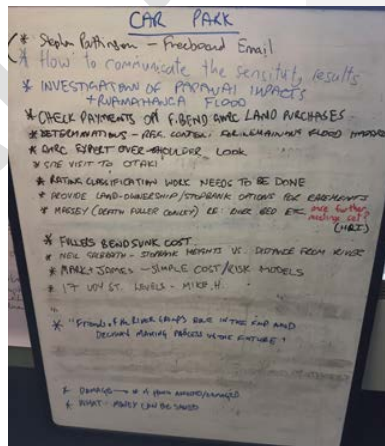 CAR PARK
* Stephen Pattinson - Freeboard Email
* How to communicate the sensitut, results
* INVESTIGATION OF PARAWAI IMPACTS
+ RUAMAHANGA FLOOD
* CHECK PAYMENTS ON F. BEND GWRC LAND PURCHASES
* DETERMINATIONS - REG. CONTEXT FOR REMAINING FLOOD HAZARD
* GWRC EXPERT OVER-SHOULDER LOOK
* SITE VISIT TO OTAKI
* RATING CLASSIFICATION WORK NEEDS TO BE DONE
* PROVIDE LAND-OWNERSHIP/STOPBANK OPTIONS FOR EASEMENTS
* MASSEY ( FULLER ) RE: RIVER BED ETC. are further
meeting set?
* FULLERS BEND SUNK COST
* NEIL - STOPBANK HEIGHTS VS. DISTANCE FROM RIVER
* MARK + JAMES - SIMPLE COST/RISK MODELS
* 17 UDY ST. LEVELS - MIKE. H.
* "Friends of the River GROUPS ROLE IN THE AND
DECISION MAKING PROCESS IN THE FUTURE +
* DAMAGE
* WHAT MONEY CAN BE SAVED